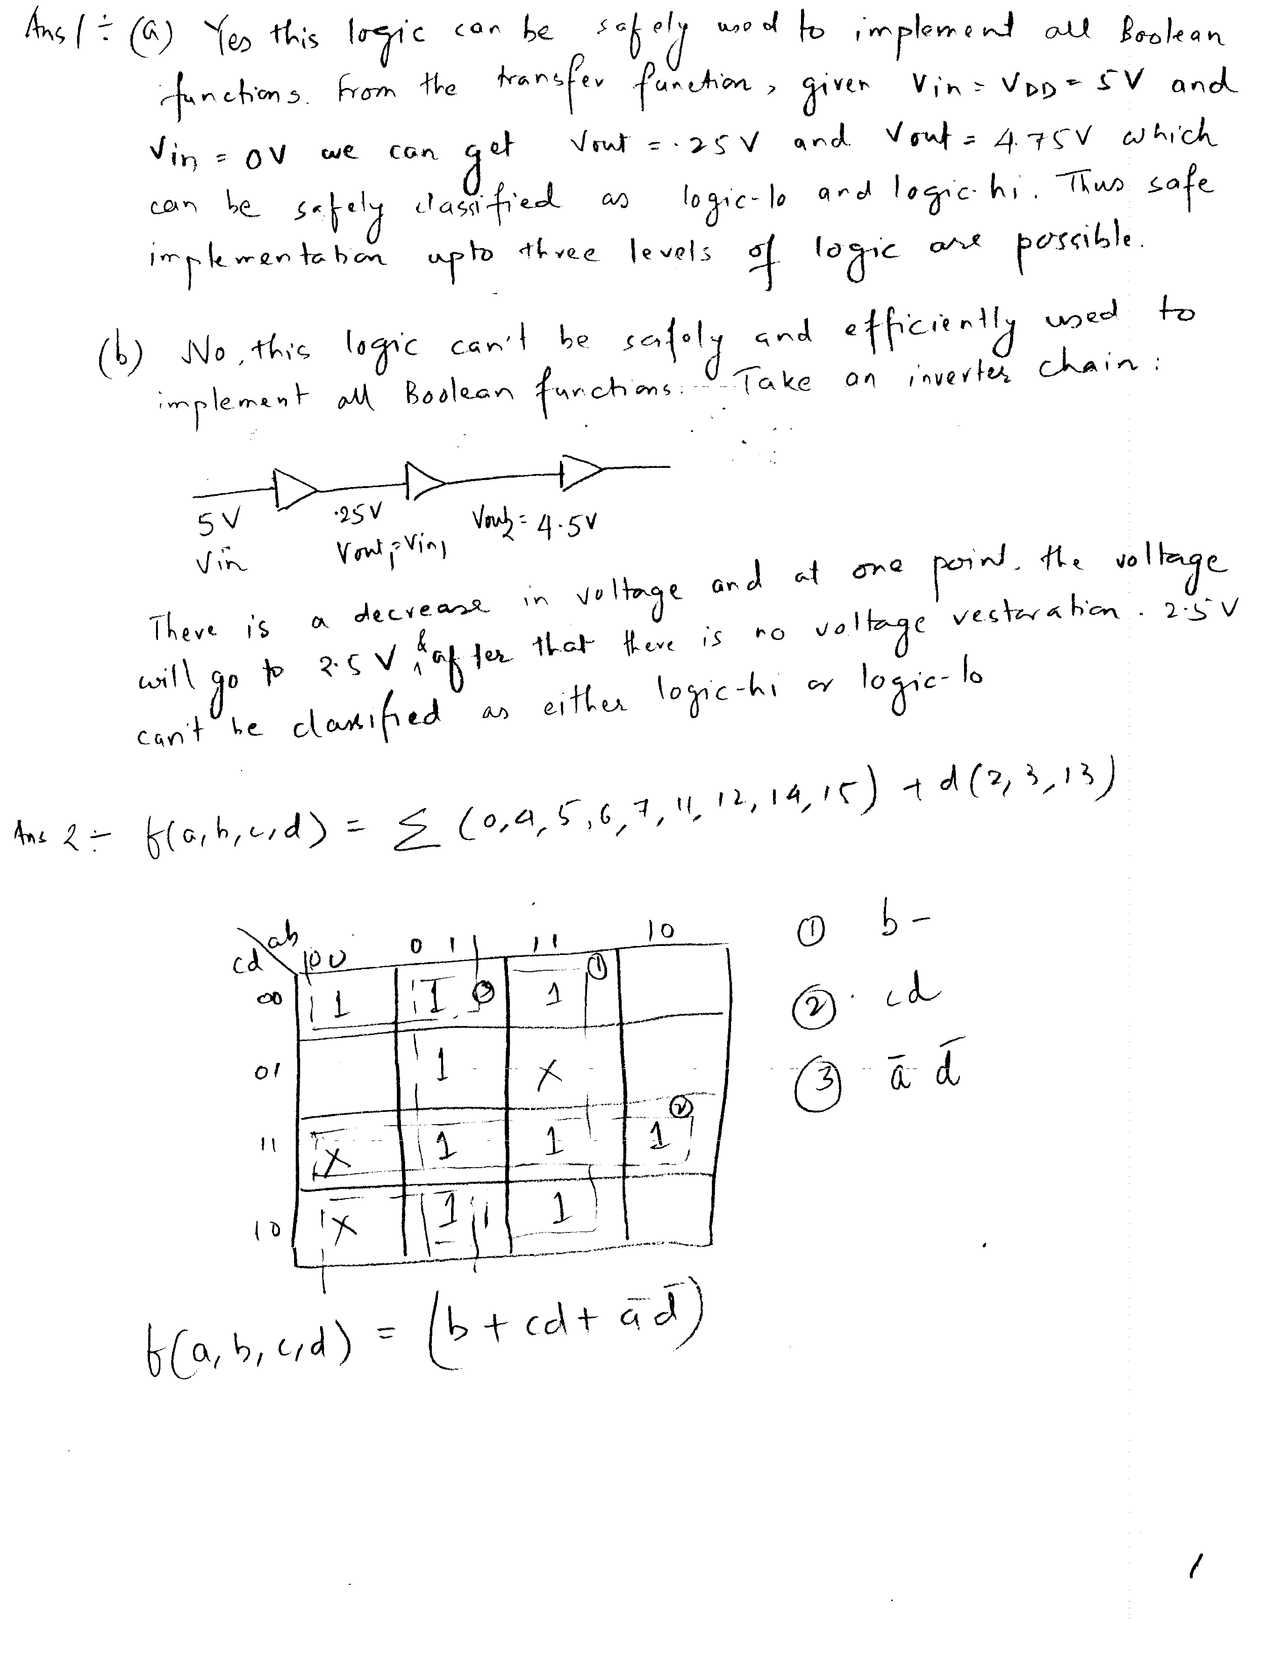 Ans 1 ÷ (a) Yes this logic can be safely used to implement all Boolean
functions. From the transfer function, given Vin = VDD = 5V and
Vin = 0V we can get Vout = .25V and Vout = 4.75V which
can be safely classified as logic-lo and logic-hi. Thus safe
implementation upto three levels of logic are possible.
(b) No, this logic can't be safely and efficiently used to
implement all Boolean functions. Take an inverter chain:
5V .25V Vout2 = 4.5V
Vin Vout1 = Vin1
There is a decrease in voltage and at one point, the voltage
will go to 2.5V & after that there is no voltage restoration. 2.5V
can't be classified as either logic-hi or logic-lo
Ans 2 ÷ f(a,b,c,d) = Σ (0,4,5,6,7,11,12,14,15) + d(2,3,13)
ab
cd 00 01 11 10
00 1 1 ③ 1 ①
01 1 X
11 X 1 1 1 ②
10 X 1 1
① b -
② cd
③ ā d̄
f(a,b,c,d) = (b + cd + ā d̄)
1